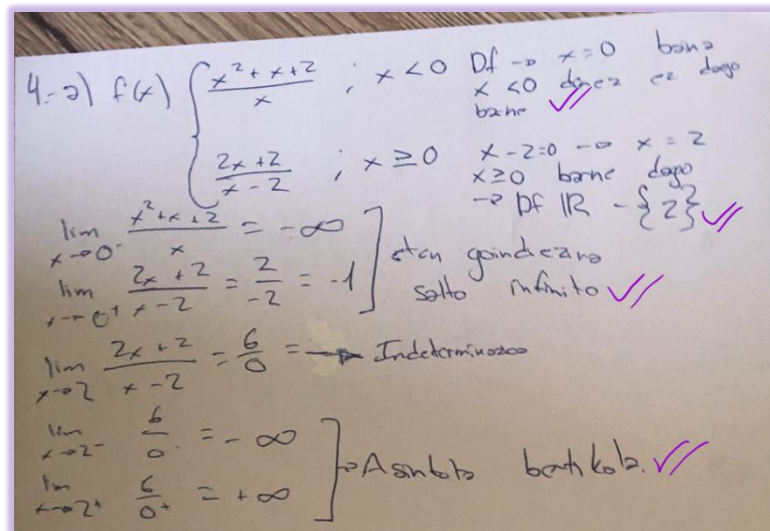 4.-a) f(x) { x²+x+2 / x ; x<0 Df → x=0 baina
x<0 denez ez dago
barne
2x+2 / x-2 ; x≥0 x-2=0 → x=2
x≥0 barne dago
→ Df ℝ -{2}
lim x→0⁻ x²+x+2 / x = -∞
lim x→0⁺ 2x+2 / x-2 = 2/-2 = -1 ] eten
salto infinito
lim x→2 2x+2 / x-2 = 6/0 = → Indeterminazioa
lim x→2⁻ 6/0⁻ = -∞
lim x→2⁺ 6/0⁺ = +∞ ] → Asintota bertikala.